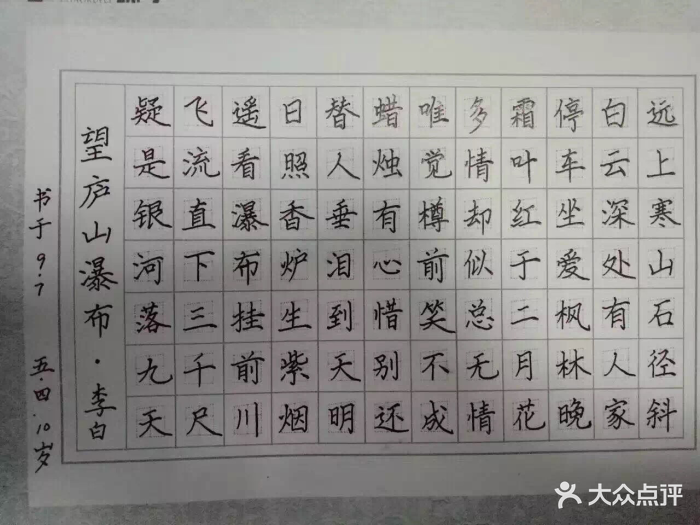 远上寒山石径斜
白云深处有人家
停车坐爱枫林晚
霜叶红于二月花
多情却似总无情
唯觉樽前笑不成
蜡烛有心惜别还
替人垂泪到天明
日照香炉生紫烟
遥看瀑布挂前川
飞流直下三千尺
疑是银河落九天
望庐山瀑布·李白
书于9.7 五.四.10岁
大众点评